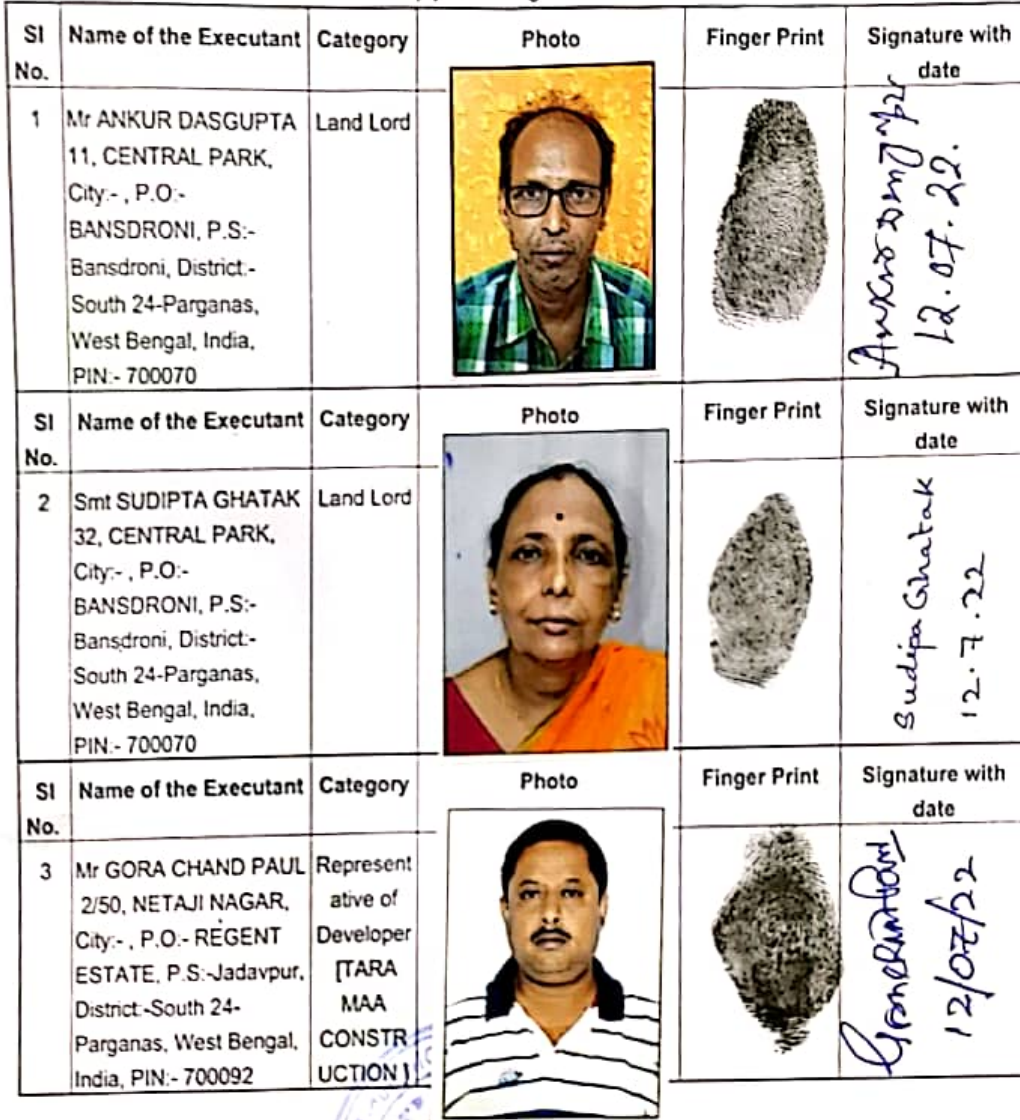 Sl No.
Name of the Executant
Category
Photo
Finger Print
Signature with date
1
Mr ANKUR DASGUPTA
11, CENTRAL PARK,
City:- , P.O:-
BANSDRONI, P.S:-
Bansdroni, District:-
South 24-Parganas,
West Bengal, India,
PIN:- 700070
Land Lord
12.07.22.
Sl No.
Name of the Executant
Category
Photo
Finger Print
Signature with date
2
Smt SUDIPTA GHATAK
32, CENTRAL PARK,
City:- , P.O:-
BANSDRONI, P.S:-
Bansdroni, District:-
South 24-Parganas,
West Bengal, India,
PIN:- 700070
Land Lord
Sudipa Ghatak
12.7.22
Sl No.
Name of the Executant
Category
Photo
Finger Print
Signature with date
3
Mr GORA CHAND PAUL
2/50, NETAJI NAGAR,
City:- , P.O:- REGENT
ESTATE, P.S:-Jadavpur,
District:-South 24-
Parganas, West Bengal,
India, PIN:- 700092
Represent
ative of
Developer
[TARA
MAA
CONSTR
UCTION ]
12/07/22